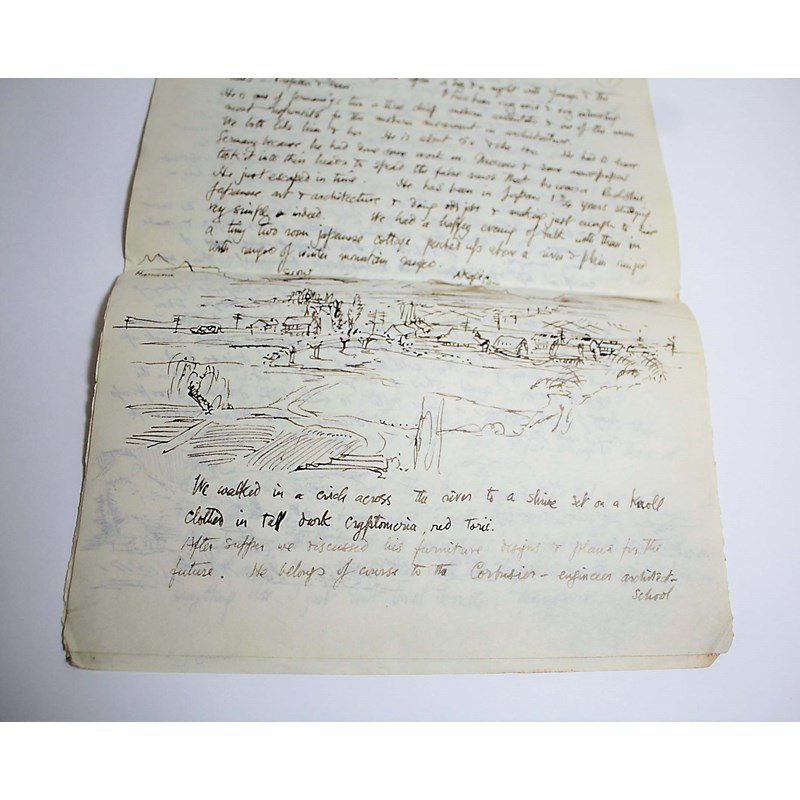 He is one of Germany's two or three chief modern architects & one of the men
most responsible for the modern movement in architecture.
We both like him & her. He is about 50 & she He had to leave
Germany because he had done some work in Moscow & some newspaper
took it into their heads to spread the false news that he was a Bolshevik.
He just escaped in time. He had been in Japan 1 3/4 years studying
Japanese art & architecture & doing jobs & making just enough to live
very simply indeed. We had a happy evening of talk with them in
a tiny two room Japanese cottage perched up above a river & plain ringed
with ranges of winter mountain ranges.
snow
We walked in a circle across the river to a shrine set on a knoll
clothed in tall dark cryptomeria, red Torii.
After supper we discussed his furniture designs & plans for the
future. He belongs of course to the Corbusier - engineer architect -
School